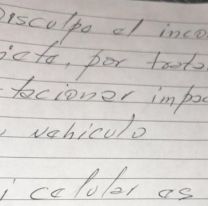 Disculpa el inco
jeto, por trata
tacionar impo
vehiculo
i celular es